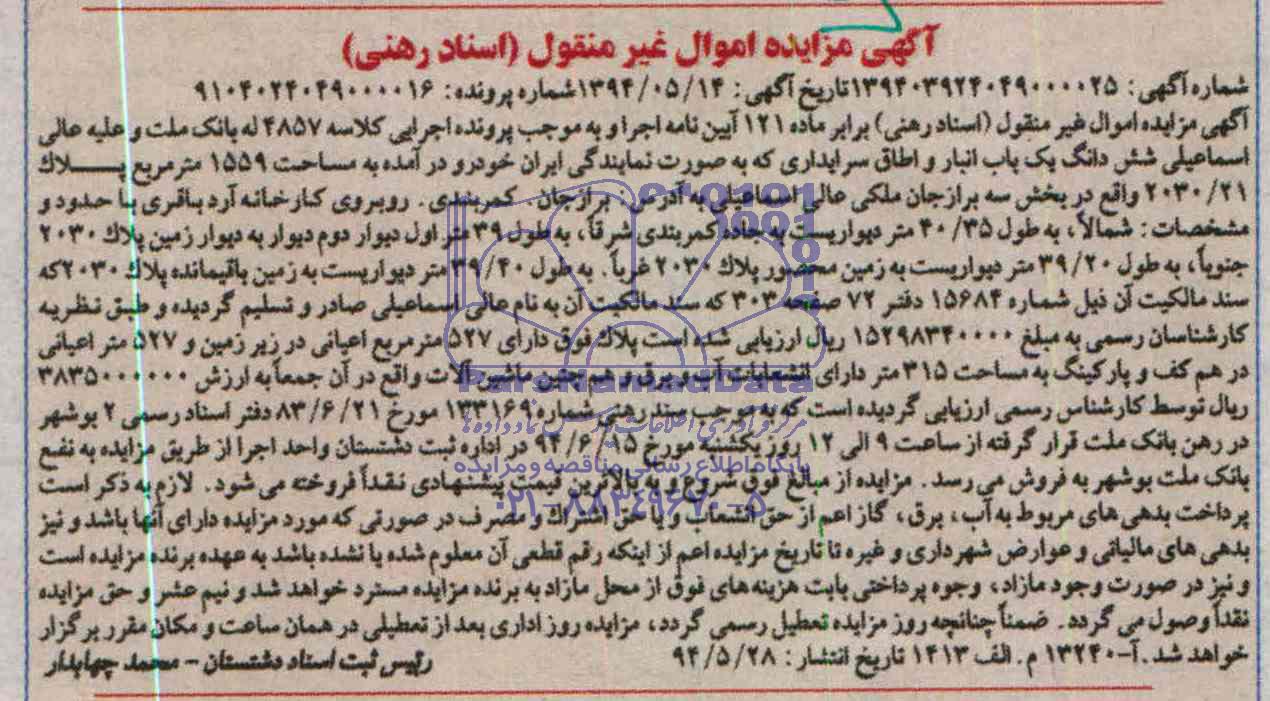 آگهی مزایده اموال غیر منقول (اسناد رهنی)
شماره آگهی: ۱۳۹۴۰۳۹۲۴۰۴۹۰۰۰۰۲۵تاریخ آگهی: ۱۳۹۴/۰۵/۱۴شماره پرونده: ۹۱۰۴۰۲۴۰۴۹۰۰۰۰۱۶
آگهی مزایده اموال غیر منقول (اسناد رهنی) برابر ماده ۱۲۱ آیین نامه اجرا و به موجب پرونده اجرایی کلاسه ۴۸۵۷ له بانک ملت و علیه عالی
اسماعیلی شش دانگ یک باب انبار و اطاق سرایداری که به صورت نمایندگی ایران خودرو در آمده به مساحت ۱۵۵۹ مترمربع پــلاک
۲۰۳۰/۲۱ واقع در بخش سه برازجان ملکی عالی اسماعیلی به آدرس، برازجان . کمربندی . روبروی کارخانه آرد باقری با حدود و
مشخصات: شمالاً، به طول ۴۰/۳۵ متر دیواریست به جاده کمربندی شرقاً، به طول ۳۹ متر اول دیوار دوم دیوار به دیوار زمین پلاک ۲۰۳۰
جنوباً، به طول ۳۹/۲۰ متر دیواریست به زمین محصور پلاک ۲۰۳۰ غرباً. به طول ۳۹/۴۰ متر دیواریست به زمین باقیمانده پلاک ۲۰۳۰که
سند مالکیت آن ذیل شماره ۱۵۶۸۴ دفتر ۷۲ صفحه ۳۰۳ که سند مالکیت آن به نام عالی اسماعیلی صادر و تسلیم گردیده و طبق نظریه
کارشناسان رسمی به مبلغ ۱۵۲۹۸۳۴۰۰۰۰ ریال ارزیابی شده است پلاک فوق دارای ۵۲۷ مترمربع اعیانی در زیر زمین و ۵۲۷ متر اعیانی
در هم کف و پارکینگ به مساحت ۳۱۵ متر دارای انشعابات آب و برق و هم چنین ماشین آلات واقع در آن جمعاً به ارزش ۳۸۳۵۰۰۰۰۰۰
ریال توسط کارشناس رسمی ارزیابی گردیده است که به موجب سند رهنی شماره ۱۳۳۱۶۹ مورخ ۸۳/۶/۲۱ دفتر اسناد رسمی ۲ بوشهر
در رهن بانک ملت قرار گرفته از ساعت ۹ الی ۱۲ روز یکشنبه مورخ ۹۴/۶/۱۵ در اداره ثبت دشتستان واحد اجرا از طریق مزایده به نفع
بانک ملت بوشهر به فروش می رسد. مزایده از مبالغ فوق شروع و به بالاترین قیمت پیشنهادی نقداً فروخته می شود. لازم به ذکر است
پرداخت بدهی های مربوط به آب، برق، گاز اعم از حق انشعاب و یا حق اشتراک و مصرف در صورتی که مورد مزایده دارای آنها باشد و نیز
بدهی های مالیاتی و عوارض شهرداری و غیره تا تاریخ مزایده اعم از اینکه رقم قطعی آن معلوم شده یا نشده باشد به عهده برنده مزایده است
و نیز در صورت وجود مازاد، وجوه پرداختی بابت هزینه های فوق از محل مازاد به برنده مزایده مسترد خواهد شد و نیم عشر و حق مزایده
نقداً وصول می گردد. ضمناً چنانچه روز مزایده تعطیل رسمی گردد، مزایده روز اداری بعد از تعطیلی در همان ساعت و مکان مقرر برگزار
خواهد شد.آ-۱۳۲۴۰ م.الف ۱۴۱۳ تاریخ انتشار: ۹۴/۵/۲۸
رئیس ثبت اسناد دشتستان - محمد چهابدار
ParsNamadData
مرکز فرآوری اطلاعات پارس نماد داده‌ها
پایگاه اطلاع رسانی مناقصه و مزایده
۰۲۱-۸۸۳۴۹۶۷۰-۵